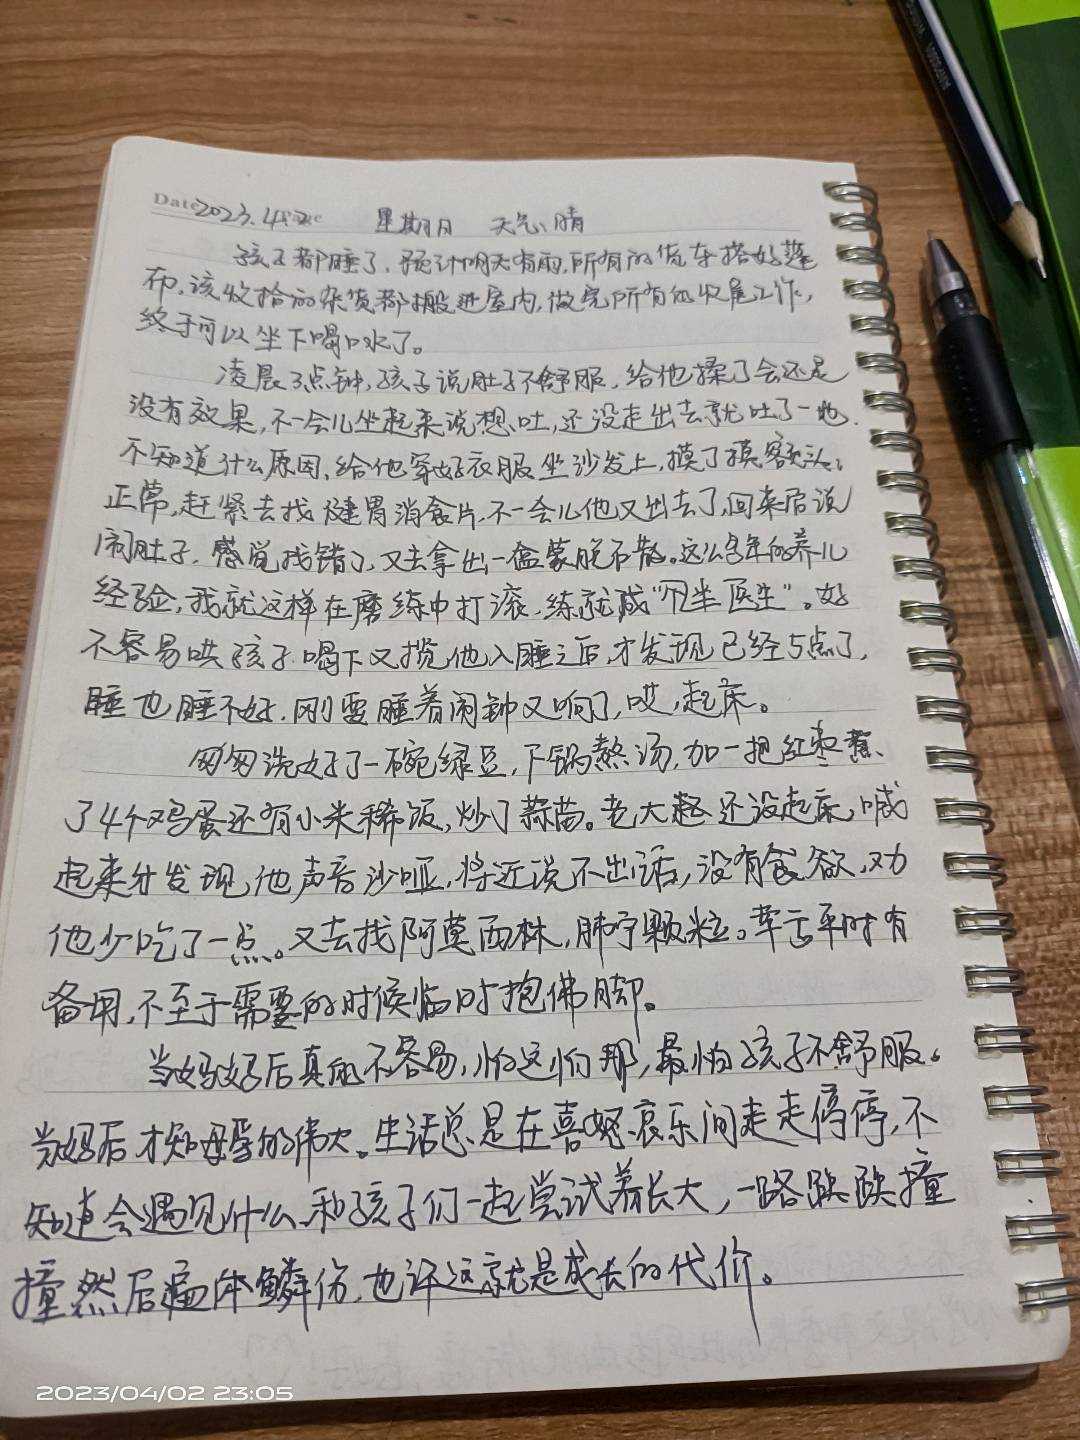 Date 2023.4.2 星期日 天气:晴
孩子都睡了,预计明天有雨,所有的货车搭好蓬
布,该收拾的杂货都搬进屋内,做完所有的收尾工作,
终于可以坐下喝口水了。
凌晨3点钟,孩子说肚子不舒服,给他揉了会还是
没有效果,不一会儿坐起来说想吐,还没走出去就吐了一地.
不知道什么原因,给他穿好衣服坐沙发上,摸了摸额头:
正常,赶紧去找健胃消食片,不一会儿他又出去了,回来后说
闹肚子,感觉找错了,又去拿出一盒蒙脱石散。这么多年的养儿
经验,我就这样在磨练中打滚,练就成“半 医生”。好
不容易哄孩子喝下又揽他入睡之后,才发现已经5点了,
睡也睡不好,刚要睡着闹钟又响了,哎,起床。
匆匆洗好了一碗绿豆,下锅熬汤,加一把红枣煮、
了4个鸡蛋还有小米稀饭,炒了蒜苗。老大还没起床,喊
起来才发现他声音沙哑,将近说不出话,没有食欲,劝
他少吃了一点。又去找阿莫西林,肺宁颗粒。幸亏平时有
备用,不至于需要的时候临时抱佛脚。
当妈妈后真的不容易,怕这怕那,最怕孩子不舒服。
当妈后才知母爱的伟大。生活总是在喜怒哀乐间走走停停,不
知道会遇见什么,和孩子们一起尝试着长大,一路跌跌撞
撞然后遍体鳞伤,也许这就是成长的代价。
2023/04/02 23:05